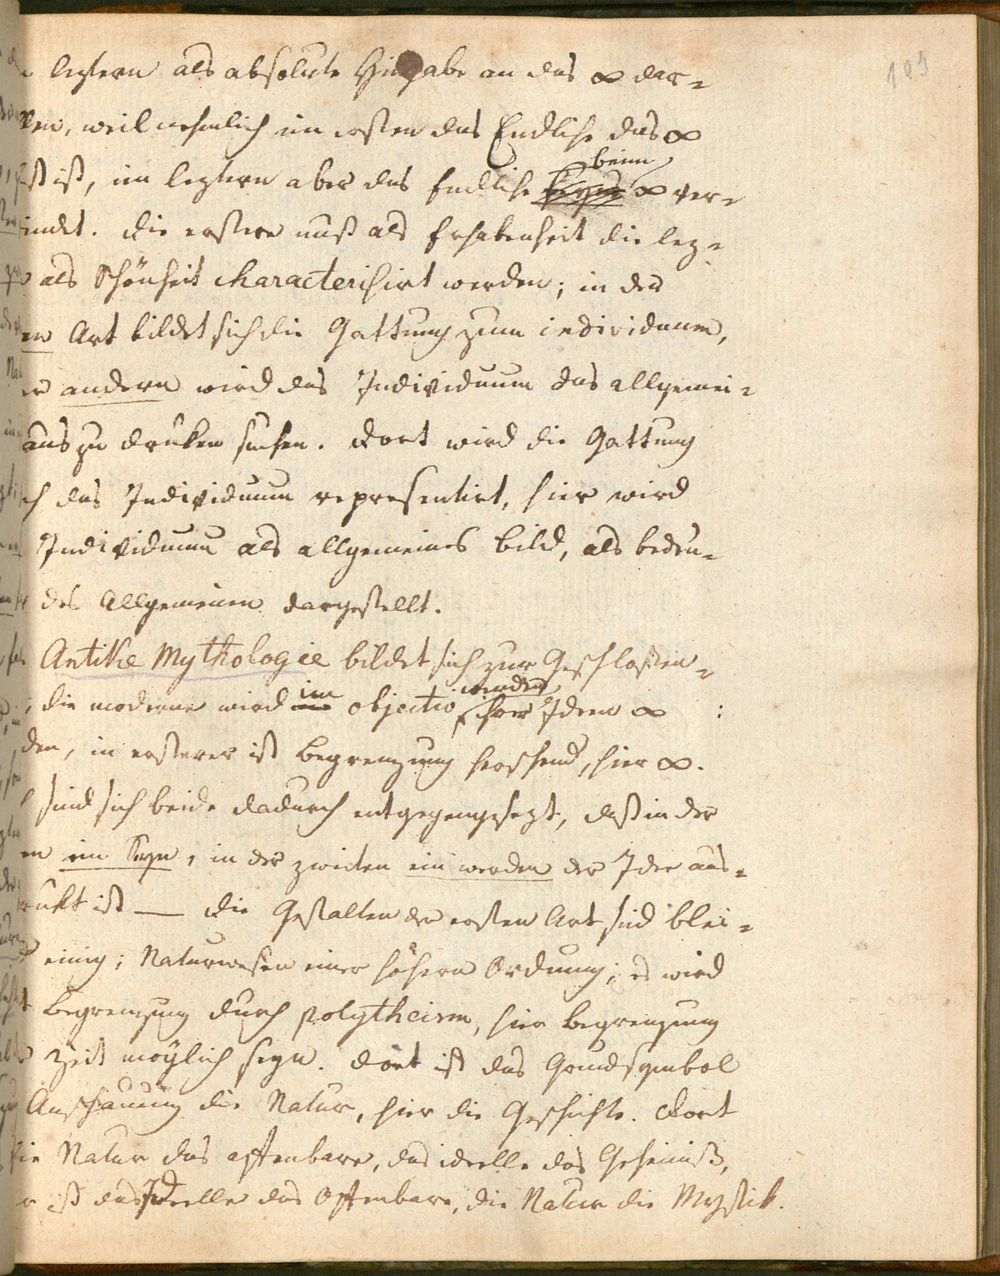 109
leztern als absolute Hingabe an das ∞ dar-
len, weil nehmlich im ersten das Endliche das ∞
st ist, im leztern aber das Endliche beim ∞ ver-
indet. Die erstere muß als Erhabenheit die lez-
als Schönheit characterisirt werden; in der
en Art bildet sich die Gattung zum individuum,
er andern wird das Individuum das allgemei-
auszudruken suchen. Dort wird die Gattung
ch das Individuum representirt, hier wird
Individuum als allgemeines bild, als bedeu-
des Allgemeinen dargestellt.
Antike Mythologie bildet sich zur Geschloßen-
, die moderne wird im objectiv werden ihrer Ideen ∞ :
den, in ersterer ist begrenzung herschend, hier ∞.
sind sich beide dadurch entgegengesezt, daß in der
en ein Seyn, in der zweiten ein werden der Idee aus-
rukt ist — die Gestalten der ersten Art sind blei-
einig; Naturwesen einer höhern Ordnung; es wird
t begrenzung durch polytheism, hier begrenzung
Zeit möglich seyn. Dort ist das Grundsymbol
Anschauung die Natur, hier die Geschichte. Dort
die Natur das offenbare, das ideelle das Geheimniß,
r ist das Ideelle das Offenbare, die Natur die Mystik.